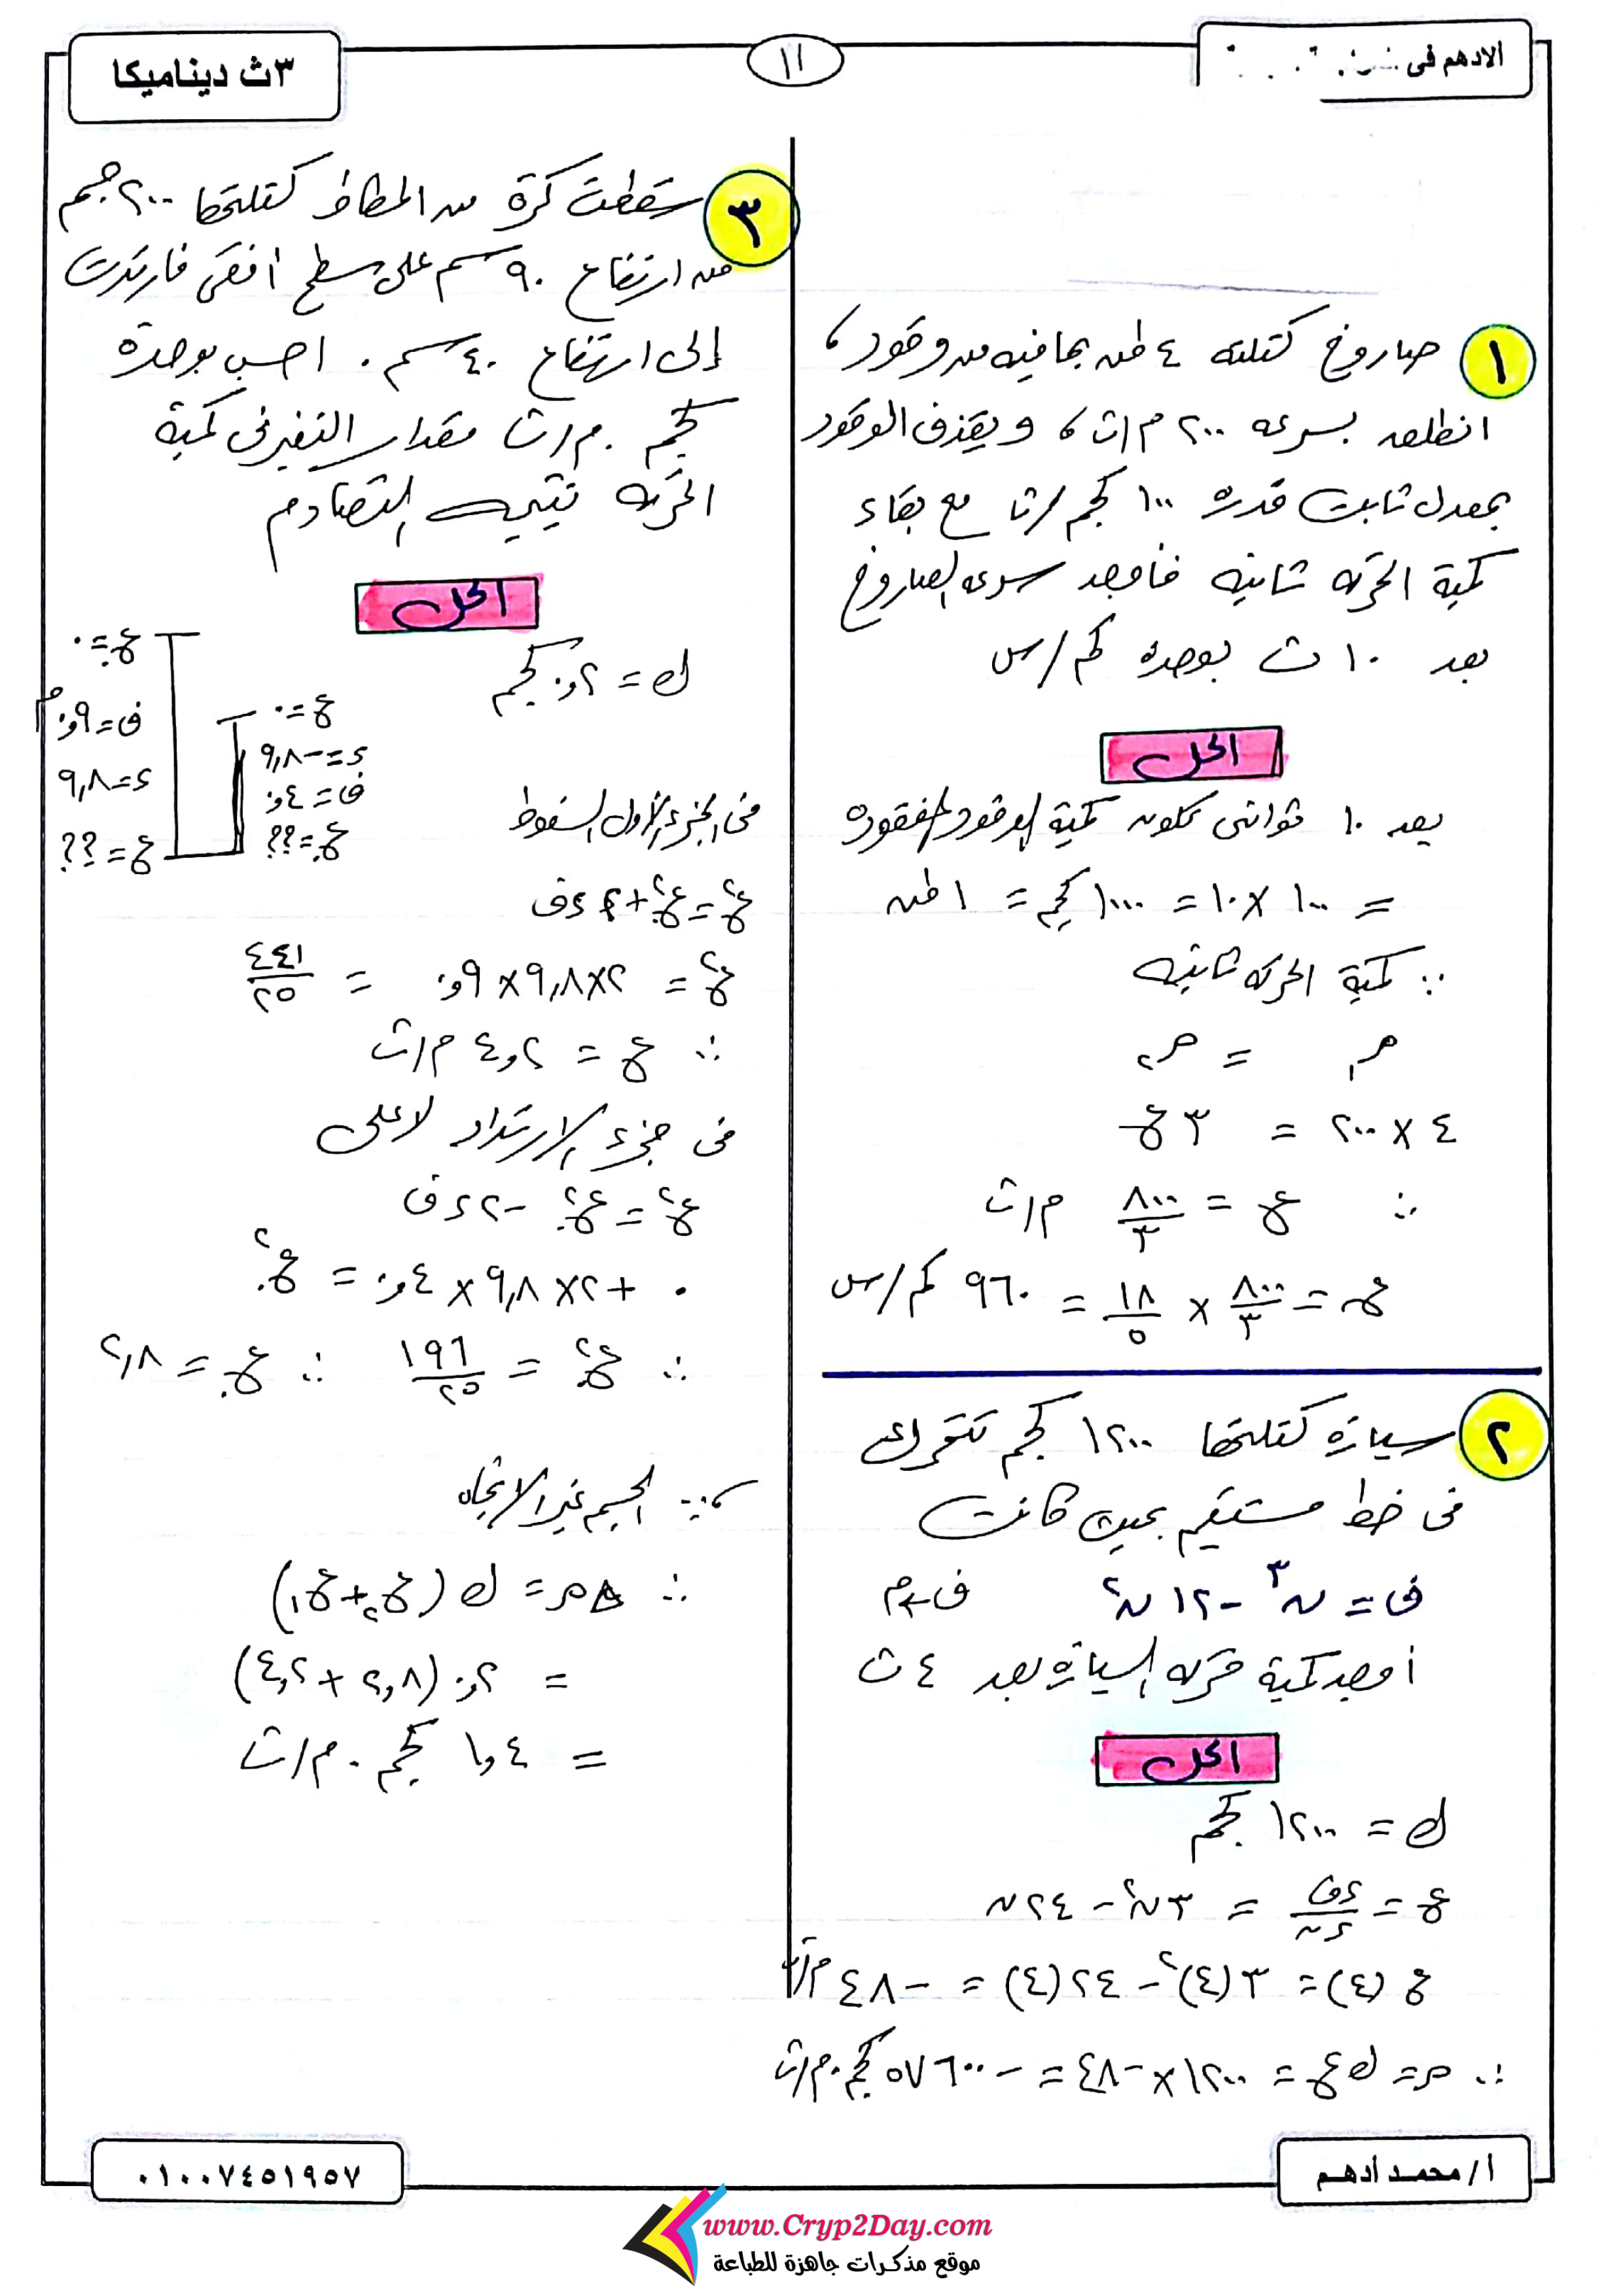 الادهم فى
١١
٣ث ديناميكا
١ صاروخ كتلته ٤ طن بما فيه من وقود ،
انطلق بسرعة ٢٠٠ م/ث ، ويقذف الوقود
بمعدل ثابت قدره ١٠٠ كجم/ث مع بقاء
كمية الحركة ثابته فأوجد سرعه الصاروخ
بعد ١٠ ث بوحده كم/س
الحل
بعد ١٠ ثوانى تكون كمية الوقود المفقوده
= ١٠٠ × ١٠ = ١٠٠٠ كجم = ١ طن
∵ كمية الحركه ثابته
م١ = م٢
٤ × ٢٠٠ = ٣ ع
∴ ع = ٨٠٠/٣ م/ث
ع = ٨٠٠/٣ × ١٨/٥ = ٩٦٠ كم/س
٢ سيارة كتلتها ١٢٠٠ كجم تتحرك
فى خط مستقيم بحيث كانت
ف = ن٣ - ١٢ ن٢ ف ← م
أوجد كمية حركه السيارة بعد ٤ ث
الحل
ك = ١٢٠٠ كجم
ع = ءف/ءن = ٣ن٢ - ٢٤ن
ع(٤) = ٣(٤)٢ - ٢٤(٤) = -٤٨ م/ث
∴ م = ك ع = ١٢٠٠ × -٤٨ = -٥٧٦٠٠ كجم.م/ث
٣ سقطت كرة من المطاط كتلتها ٢٠٠ جم
من ارتفاع ٩٠ سم على سطح أفقى فارتدت
إلى ارتفاع ٤٠ سم . احسب بوحدة
كجم . م/ث مقدار التغير فى كمية
الحركه نتيجه التصادم
الحل
ك = ٠,٢ كجم
ع.=٠
ف=٠,٩ م
ء=٩,٨
ع=؟؟
ع=٠
ء=-٩,٨
ف=٠,٤
ع.=؟؟
فى الجزء الأول السقوط
ع٢ = ع.٢ + ٢ء ف
ع٢ = ٢×٩,٨×٠,٩ = ٤٤١/٢٥
∴ ع = ٤,٢ م/ث
فى جزء الارتداد لاعلى
ع٢ = ع.٢ - ٢ء ف
٠ + ٢×٩,٨×٠,٤ = ع.٢
∴ ع.٢ = ١٩٦/٢٥ ∴ ع. = ٢,٨
، ∵ الجسم غير الاتجاه
∴ Δم = ك (ع٢ + ع١)
= ٠,٢ (٢,٨ + ٤,٢)
= ١,٤ كجم . م/ث
أ/ محمد أدهم
٠١٠٠٧٤٥١٩٥٧
www.Cryp2Day.com
موقع مذكرات جاهزة للطباعة